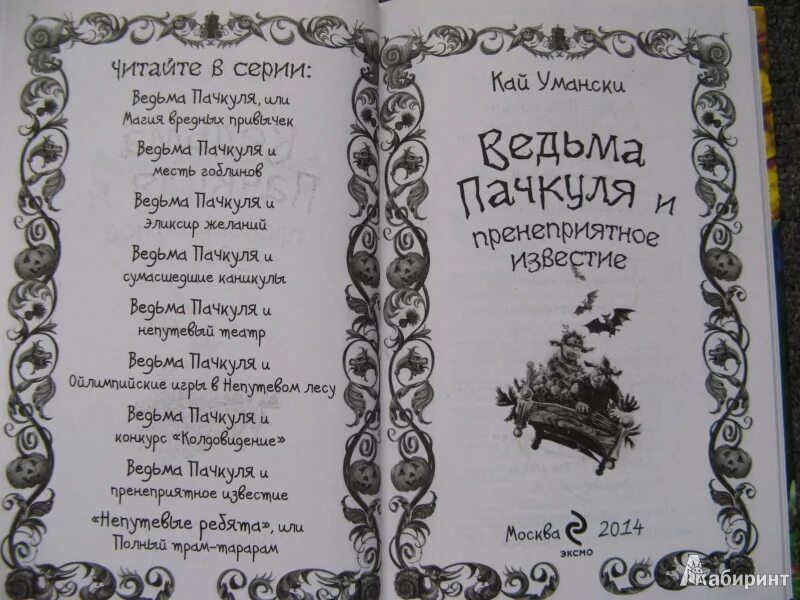 Читайте в серии:
Ведьма Пачкуля, или
Магия вредных привычек
Ведьма Пачкуля и
месть гоблинов
Ведьма Пачкуля и
эликсир желаний
Ведьма Пачкуля и
сумасшедшие каникулы
Ведьма Пачкуля и
непутевый театр
Ведьма Пачкуля и
Ойлимпийские игры в Непутевом лесу
Ведьма Пачкуля и
конкурс «Колдовидение»
Ведьма Пачкуля и
пренеприятное известие
«Непутевые ребята», или
Полный трам-тарарам
Кай Умански
Ведьма
Пачкуля и
пренеприятное
известие
Москва 2014
эксмо
Лабиринт